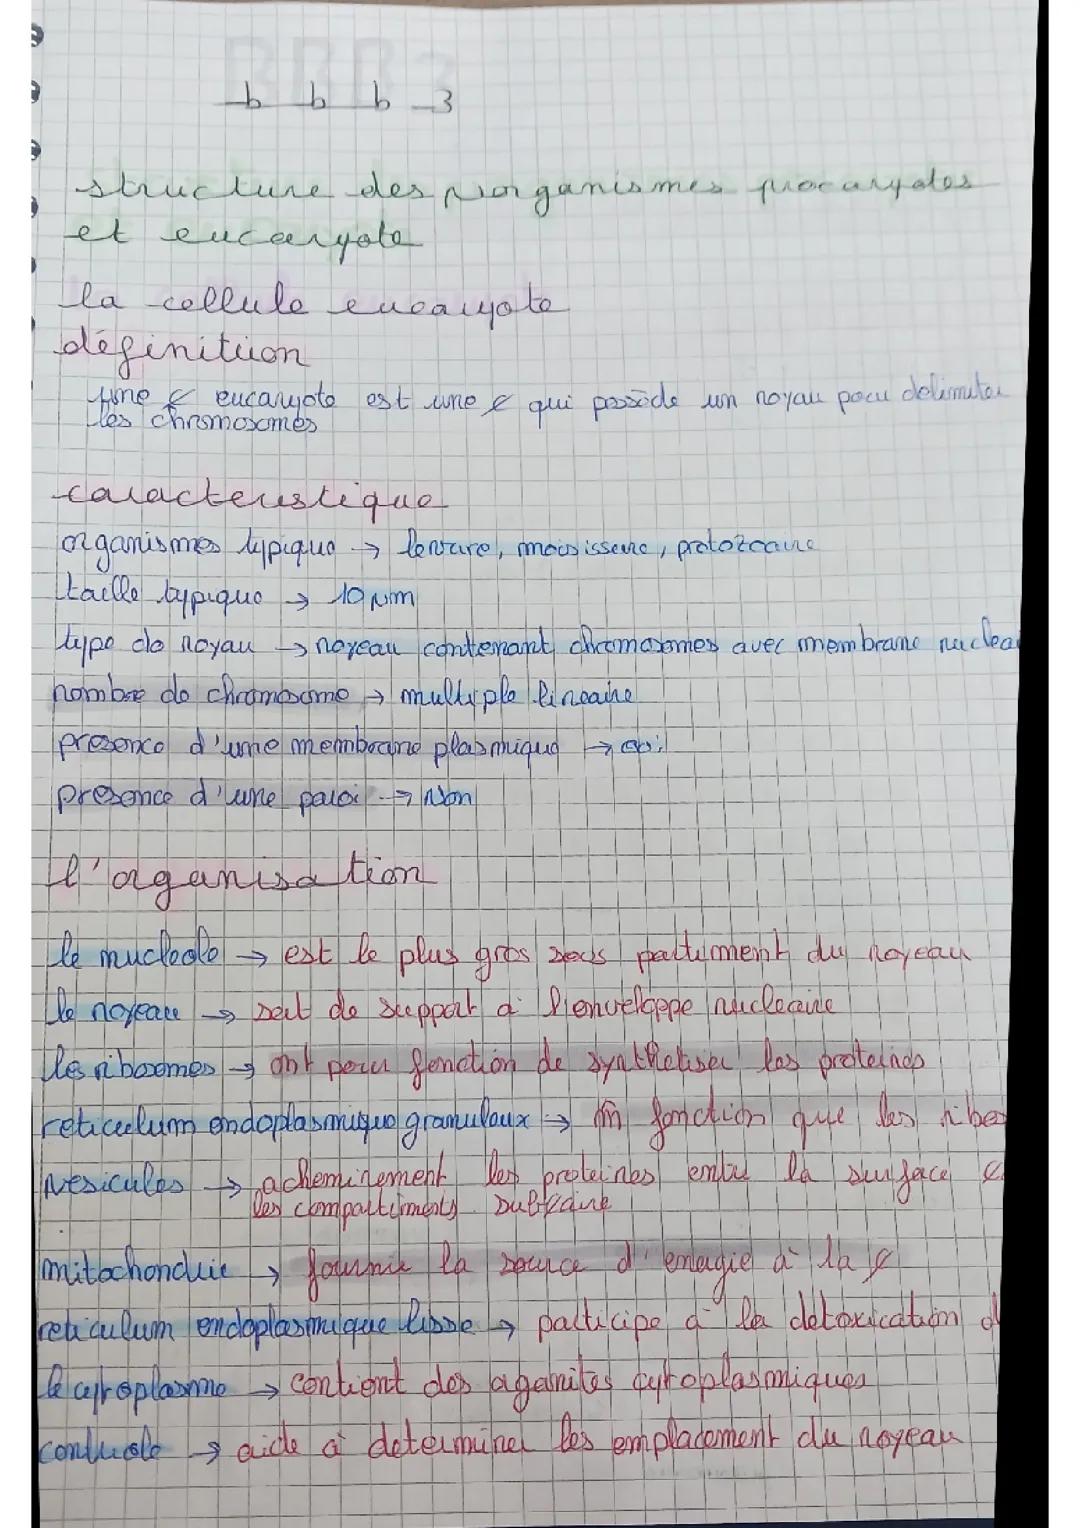 b b b _3
structure des organismes procaryotes
et eucaryote
la cellule eucaryote
définition
une ¢ eucaryote est une ¢ qui possède un noyau pour delimiter
les chromosomes
caracteristique
organismes typique → levure, moisissure, protozoaire
taille typique → 10 µm
type de noyau → noyeau contenant chromosomes avec membrane nuclea
nombre de chromosome → multiple lineaire
presence d'une membrane plasmique → oui
presence d'une paroi → Non
l'organisation
le nucleole → est le plus gros sous partiment du noyeau
le noyeau → sert de support a l'enveloppe nucleaire
les ribosomes → ont pour fonction de synthetiser les proteines
reticulum endoplasmique granuleux → m̂ fonction que les ribos
vesicules → acheminement les proteines entre la surface
les compartiments
mitochondrie → fournie la source d'energie à la ¢
reticulum endoplasmique lisse → participe a la detoxication d
le cytoplasme → contient des organites cytoplasmiques
centriole → aide à determiner les emplacement du noyeau